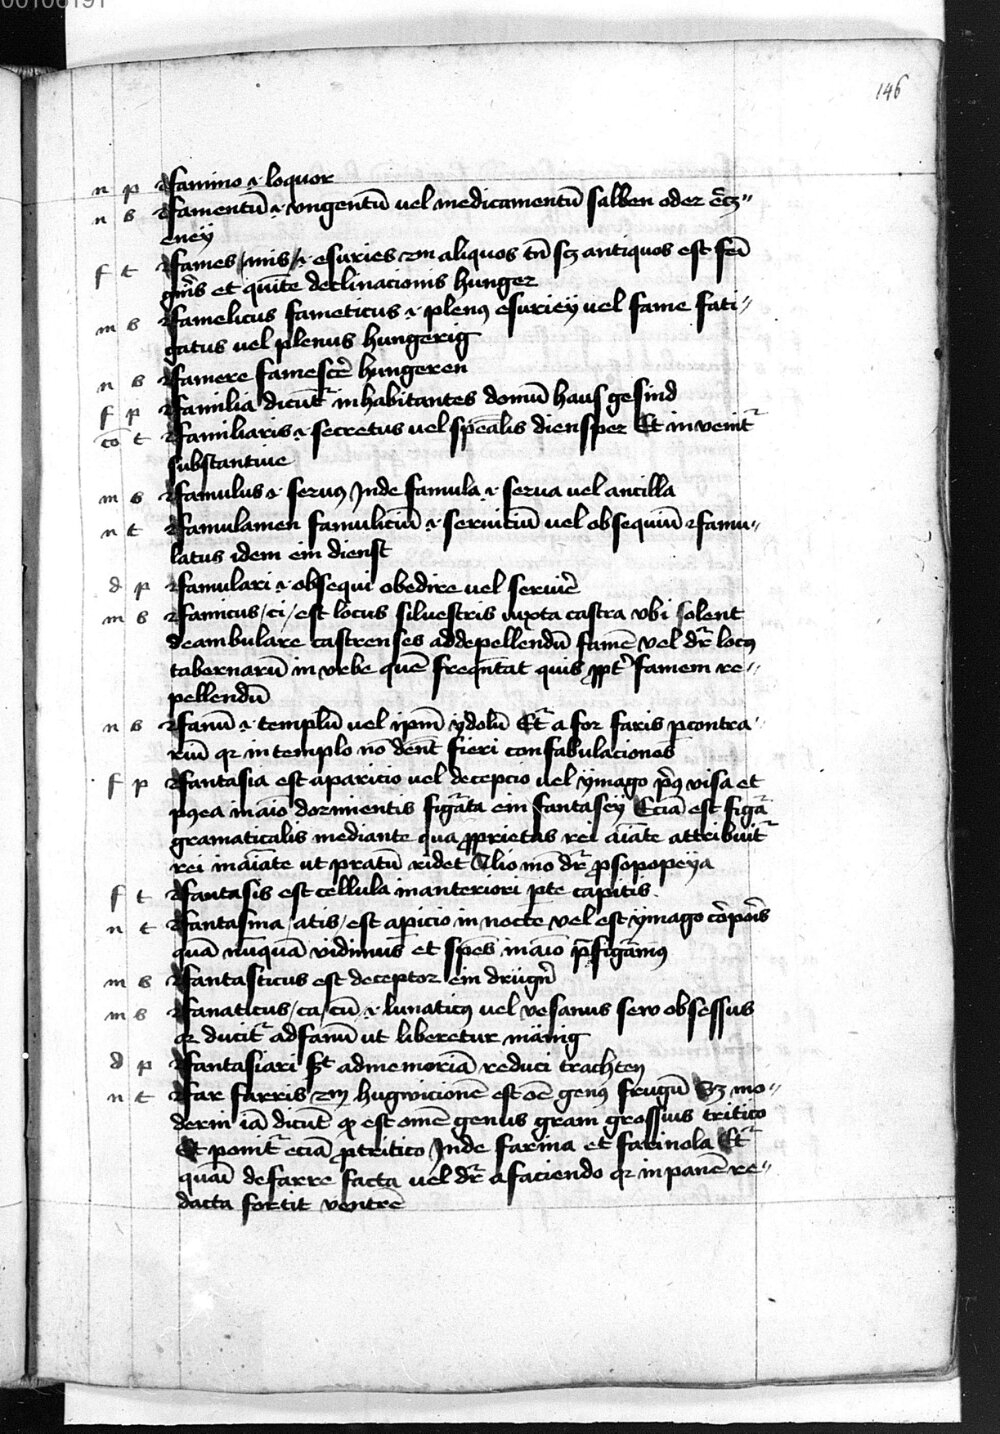 00106191
146
n p famino .i. loquor
n s famentū .i. vngentū uel medicamentū salben oder
eney
f t fames /mis/ .i. esuries scdm aliquos tn̄ scz antiquos est fēi
gn̄is et quīte declinacionis hunger
m s famelicus fameticus .i. plenꝰ esuriey uel fame fati-
gatus uel plenus hungerig
n s famere famescēr hungeren
f p familia dicunt᷑ inhabitantes domū haus gesind
cō t familiaris .i. secretus uel spēalis diensper Et invenit᷑
substantiue
m s famulus .i. seruꝰ Inde famula .i. serua uel ancilla
n t famulamen famuliciū .i. seruiciū uel obsequiū famu-
latus idem ein dienst
d p famulari .i. obsequi obedire uel seruīe
m s famicus/ci/ est locus siluestris iuxta castra vbi solent
deambulare castrenses addepellendū famē vel dr̄ locꝰ
tabernarū in vrbe quē freqn̄tat quis ꝓpt̄ famem re-
pellendū
n s fanū .i. templū uel ipm̄ ydolū Et᷑ a for faris ꝑcontra-
riū qr in templo nō dēnt fieri confabulaciones
f p fantasia est aparicio uel decepcio uel ymago pͥꝰ visa et
pꝰea in aīo dormientis figᷓata ein fantasey Eciā est figᷓa
gramaticalis mediante qua ꝓprietas rei aīate attribuit᷑
rei inaīate ut pratū ridet Alio mō dr̄ ꝓsopopeya
f t fantasis est cellula in anteriori ꝑte capitis
n t fantasma /atis/ est apicio in nocte vel est ymago cōrpoīs
quā nūquā vidimus et spēs in aīo p̄figᷓamꝰ
m s fantasticus est deceptor ein drügn̄
m s fanaticus/ca/cū .i. lunaticꝰ uel vesanus sew obsessus
qr ducit᷑ ad fanū ut liberetur mänig
d p fantasiari st̄ ad memoriā reduci trachten
n t far farris scdm hugwicionē est oē genꝰ frugū Sz mo-
derni iā dicūt ꝙ est omē genus gram grossius tritico
Et ponit᷑ eciā ꝓ tritico Inde farina et farinola Et᷑
quasi de farre facta uel dr̄ a faciendo qr in panē re-
dacta fortit ventrē